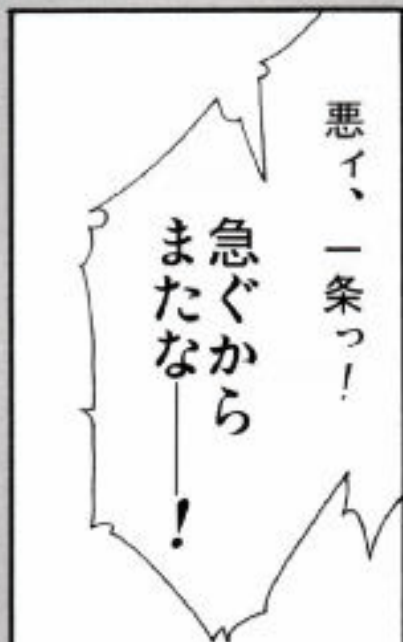 悪ィ、一条っ!
急ぐから
またな――!